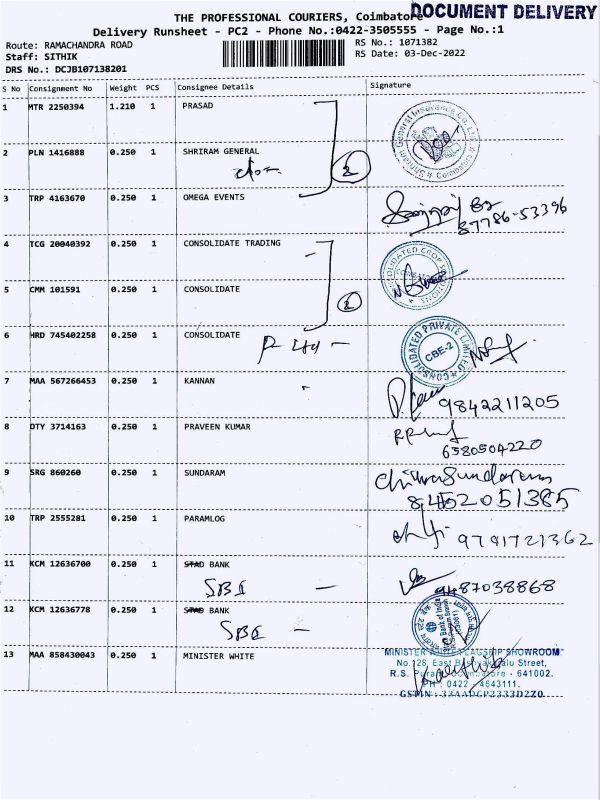 DOCUMENT DELIVERY
THE PROFESSIONAL COURIERS, Coimbatore
Delivery Runsheet - PC2 - Phone No.:0422-3505555 - Page No.:1
Route: RAMACHANDRA ROAD
Staff: SITHIK
DRS No.: DCJB107138201
RS No.: 1071382
RS Date: 03-Dec-2022
S No Consignment No Weight PCS Consignee Details Signature
1 MTR 2250394 1.210 1 PRASAD
2 PLN 1416888 0.250 1 SHRIRAM GENERAL
2
Shriram General Insurance Co. Ltd. Coimbatore
3 TRP 4163670 0.250 1 OMEGA EVENTS
87786-53396
4 TCG 20040392 0.250 1 CONSOLIDATE TRADING
5 CMM 101591 0.250 1 CONSOLIDATE
6 HRD 745402258 0.250 1 CONSOLIDATE
P Ltd -
CONSOLIDATED PRIVATE LIMITED
CBE-2
7 MAA 567266453 0.250 1 KANNAN
9842211205
8 OTY 3714163 0.250 1 PRAVEEN KUMAR
6380504220
9 SRG 860260 0.250 1 SUNDARAM
10 TRP 2555281 0.250 1 PARAMLOG
9791721362
11 KCM 12636700 0.250 1 STAD BANK
SBI -
9487038868
12 KCM 12636778 0.250 1 STAD BANK
SBI -
13 MAA 858430043 0.250 1 MINISTER WHITE
MINISTER WHITE FLAGSHIP SHOWROOM
No.128, East
Street,
R.S. Puram, Coimbatore - 641002.
PH : 0422 - 4643111.
GSTIN : 33AADCP2333D2Z0